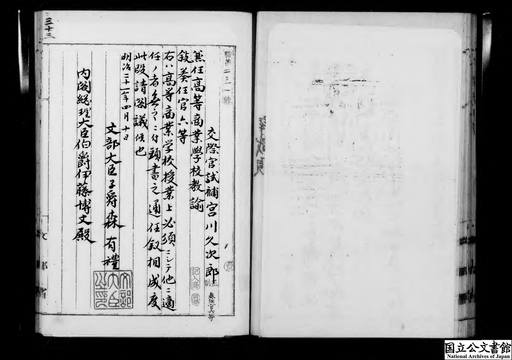 交際官試補宮川久次郎
兼任高等商業学校教諭
叙奏任官六等
右ハ高等商業学校授業上必須ニシテ他ニ適
任ノ者無之ニ付頭書之通任叙相成度
此段請閣議候也
明治二十一年四月十日
文部大臣子爵森有禮
内閣総理大臣伯爵伊藤博文殿
文部省
国立公文書館
National Archives of Japan